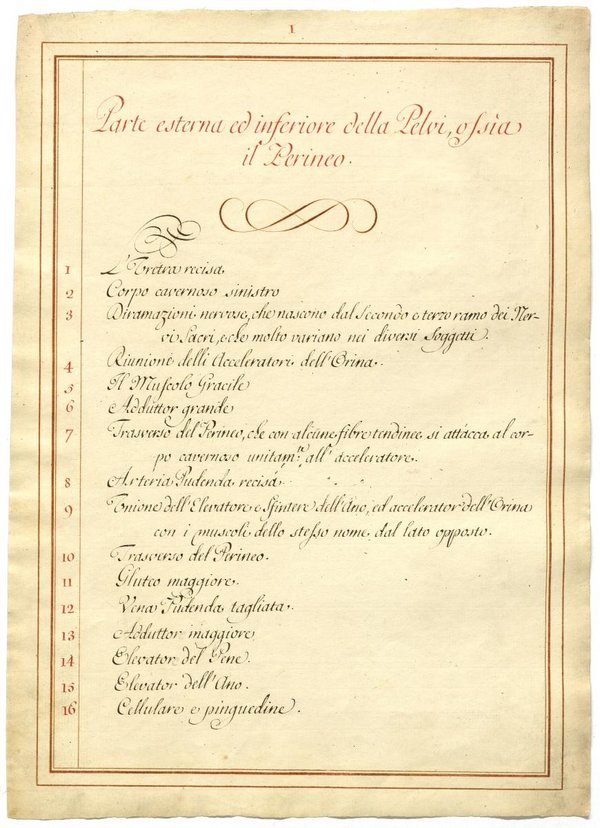 I
Parte esterna ed inferiore della Pelvi, ossìa
il Perineo.
1 L'Uretra recisa
2 Corpo cavernoso sinistro
3 Diramazioni nervose, che nascono dal Secondo e terzo ramo dei Ner-
vi Sacri, e che molto variano nei diversi Soggetti.
4 Riunione delli Acceleratori dell'Orina.
5 Il Muscolo Gracile
6 Adduttor grande
7 Trasverso del Perineo, che con alcune fibre tendinee si attacca al cor-
po cavernoso unitam.te all'acceleratore.
8 Arteria Pudenda recisa.
9 Unione dell'Elevatore e Sfintere dell'Ano, ed accelerator dell'Orina
con i muscoli dello stesso nome dal lato opposto.
10 Trasverso del Perineo.
11 Gluteo maggiore.
12 Vena Pudenda tagliata.
13 Adduttor maggiore
14 Elevator del Pene.
15 Elevator dell'Ano.
16 Cellulare e pinguedine.